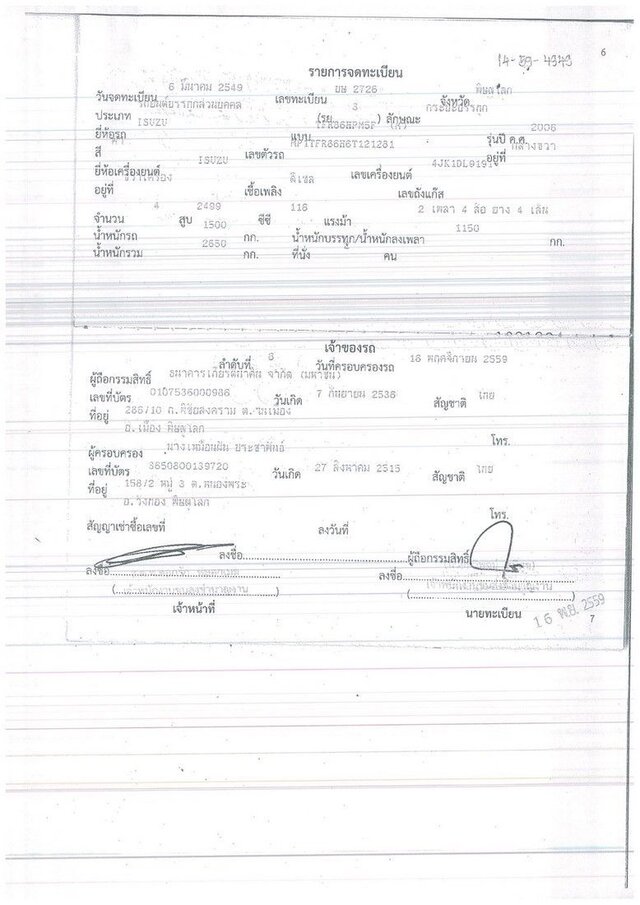 6
14-59-4343
รายการจดทะเบียน
วันจดทะเบียน 6 มีนาคม 2549 เลขทะเบียน บษ 2726 จังหวัด พิษณุโลก
ประเภท รถยนต์บรรทุกส่วนบุคคล (รย. 3 ) ลักษณะ กระบะบรรทุก
ยี่ห้อรถ ISUZU แบบ รุ่นปี ค.ศ. 2006
สี ดำ เลขตัวรถ MP1TFR86H6T121281 อยู่ที่
ยี่ห้อเครื่องยนต์ ISUZU เลขเครื่องยนต์
อยู่ที่ ขวาเครื่อง เชื้อเพลิง ดีเซล เลขถังแก๊ส
จำนวน 4 สูบ 2499 ซีซี 116 แรงม้า 2 เพลา 4 ล้อ ยาง 4 เส้น
น้ำหนักรถ 1500 กก. น้ำหนักบรรทุก/น้ำหนักลงเพลา 1150 กก.
น้ำหนักรวม 2650 กก. ที่นั่ง คน
เจ้าของรถ
ลำดับที่ 6 วันที่ครอบครองรถ 16 พฤศจิกายน 2559
ผู้ถือกรรมสิทธิ์ ธนาคารเกียรตินาคิน จำกัด (มหาชน)
เลขที่บัตร 0107536000986 วันเกิด 7 กันยายน 2536 สัญชาติ ไทย
ที่อยู่ 286/10 ถ.พิชัยสงคราม ต.ในเมือง
อ.เมือง พิษณุโลก โทร.
ผู้ครอบครอง
เลขที่บัตร 3650800139720 วันเกิด 27 สิงหาคม 2515 สัญชาติ ไทย
ที่อยู่ 158/2 หมู่ 3 ต.หนองพระ
อ.วังทอง พิษณุโลก
สัญญาเช่าซื้อเลขที่ ลงวันที่ โทร.
ลงชื่อ ผู้ถือกรรมสิทธิ์
ลงชื่อ ลงชื่อ
เจ้าหน้าที่ นายทะเบียน
16 พ.ย. 2559
7